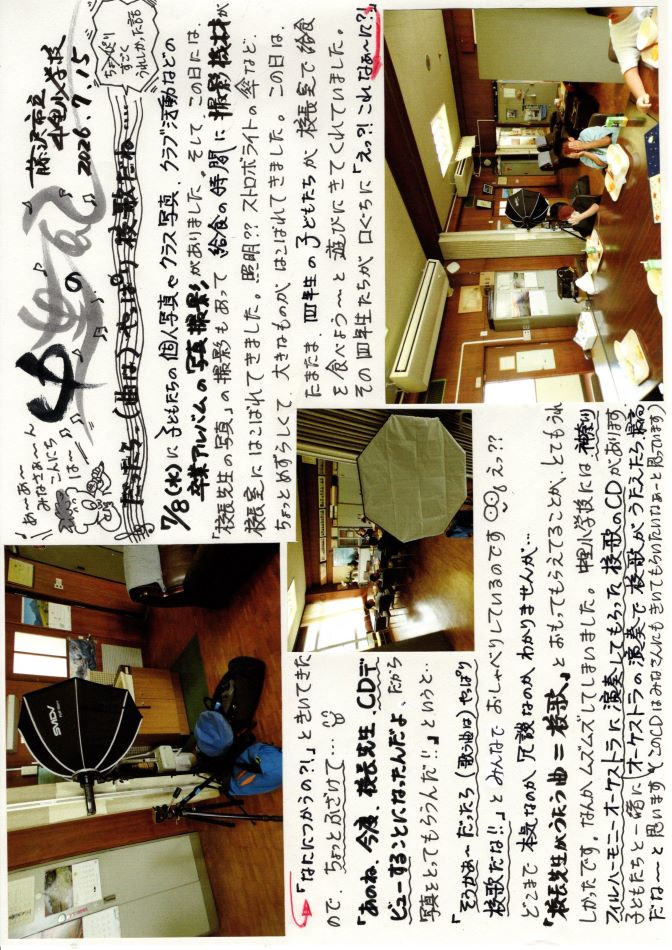 藤沢市立
中里小学校
2026.7.15
中里の記
ちょっぴり
すごく
うれしかった話
♪あ〜あ〜
みなさぁ〜ん
こんにち
は〜♪
だったら(曲は)やっぱり校歌だね……
7/8(水)に子どもたちの個人写真やクラス写真、クラブ活動などの
卒業アルバムの写真撮影がありました。そして、この日には
「校長先生の写真」の撮影もあって給食の時間に撮影機材が
校長室にはこばれてきました。照明??ストロボライトの傘など、
ちょっとめずらしくて、大きなものがはこばれてきました。この日は、
たまたま、四年生の子どもたちが、校長室で給食
を食べよう〜と遊びにきてくれていました。
その四年生たちが口ぐちに「えっ?!これなぁ〜に?」
「なにつかうの?!」ときいてきた
ので、ちょっとふざけて…
「あのね、今度、校長先生、CDデ
ビューすることになったんだよ。だから
写真をとってもらうんだ!!」というと…
「そうかぁ〜だったら(歌う曲は)やっぱり
校歌だな!!」とみんなでおしゃべりしているのです えっ??
どこまで本気なのか冗談なのかわかりませんが…
「校長先生がうたう曲=校歌」とおもってもらえてることが、とてもうれ
しかたです。なんかムズムズしてしまいました。中里小学校には神奈川
フィルハーモニーオーケストラに演奏してもらった校歌のCDがあります。
子どもたちと一緒にオーケストラの演奏で校歌がうたえたら最高
だな〜と思います(このCDはみなさんにもきいてもらいたいなぁーと思っています)